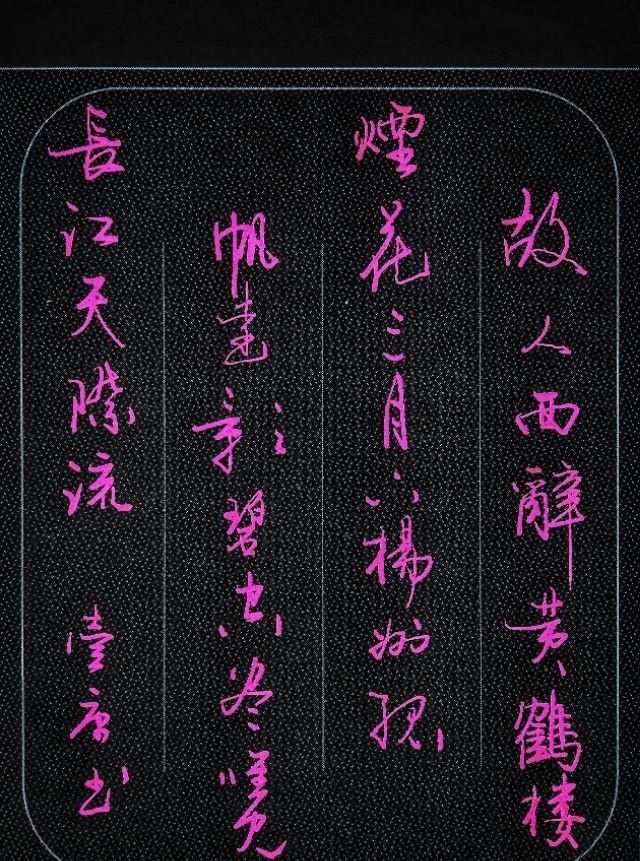 故人西辭黄鶴楼
煙花三月下楊州孤
帆遠影碧空尽唯見
長江天際流 书